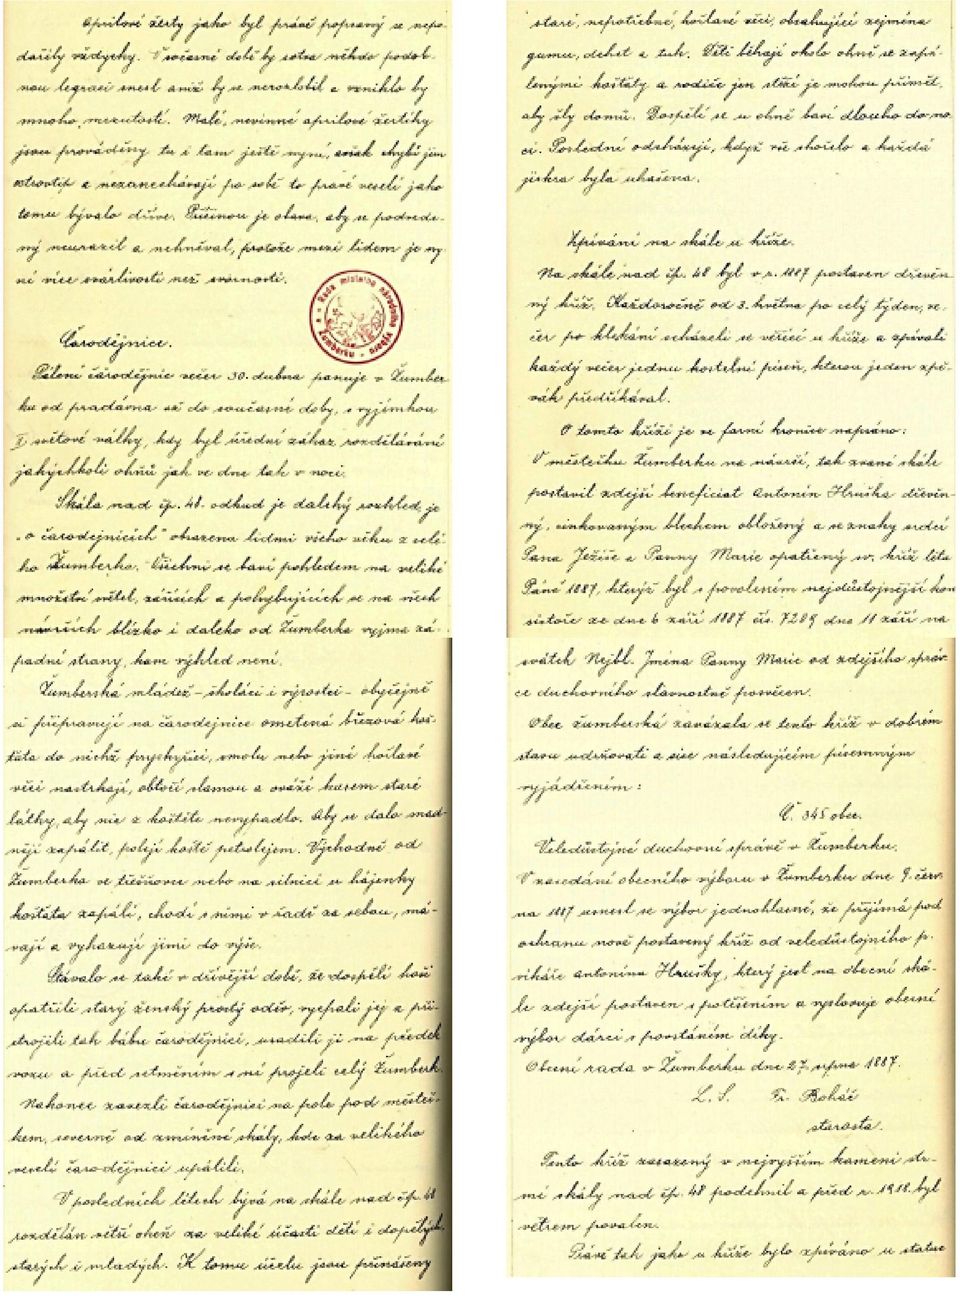 Aprílové žerty jako byl právě popsaný se nepo-
dařily vždycky. V současné době by sotva někdo podob-
nou legraci snesl aniž by se nerozzlobil a vzniklo by
mnoho mrzutostí. Malé, nevinné aprílové žertíky
jsou prováděny tu i tam ještě nyní, avšak chybí jim
ostrovtip a nezanechávají po sobě to pravé veselí jako
tomu bývalo dříve. Příčinou je obava, aby se podvede-
ný neurazil a nehněval, protože mezi lidem je ny-
ní více svárlivosti než svornosti.
Rada místního národního výboru Žumberku - okres
Čarodějnice.
Pálení čarodějnic večer 30. dubna panuje v Žumber
ku od pradávna až do současné doby, s vyjímkou
II světové války, kdy byl úřední zákaz rozdělávání
jakýchkoli ohňů jak ve dne tak v noci.
Skála nad čp. 48. odkud je daleký rozhled je
"o čarodejnicích" obsazena lidmi všeho věku z celé
ho Žumberka. Všichni se baví pohledem na veliké
množství světel, zářících a pohybujících se na všech
návrších blízko i daleko od Žumberka vyjma zá-
padní strany, kam výhled není.
Žumberská mládež - školáci i výrostci - obyčejně
si připravují na čarodejnice ometená březová koš-
ťata do nichž pryskyřici, smolu nebo jiné hořlavé
věci nastrkají, obtočí slamou a ováží kusem staré
látky, aby nic z koštěte nevypadlo. Aby se dalo snad
něji zapálit, polejí koště petrolejem. Východně od
Žumberka ve třešňovce nebo na silnici u hájenky
košťata zapálí, chodí s nimi v řadě za sebou, má-
vají a vyhazují jimi do výše.
Stávalo se také v dřívější době, že dospělí hoši
opatřili starý ženský prostý oděv, vycpali jej a při-
strojili tak bábu čarodějnici, usadili ji na předek
vozu a před setměním s ní projeli celý Žumberk.
Nakonec zavezli čarodějnici na pole pod městeč-
kem, severně od zmíněné skály, kde za velikého
veselí čarodějnici upálili.
V posledních létech bývá na skále nad čp. 48
rozdělán větší oheň za veliké účasti dětí i dospělých,
starých i mladých. K tomu účelu jsou přinášeny
staré, nepotřebné, hořlavé věci, obsahující zejména
gumu, dehet a tuk. Děti běhají okolo ohně se zapá-
lenými košťaty a rodiče jen stěží je mohou přimět,
aby šly domů. Dospělí se u ohně baví dlouho do no-
ci. Poslední odcházejí, když vše shořelo a každá
jiskra byla uhašena.
Zpívání na skále u kříže.
Na skále nad čp. 48 byl v r. 1887 postaven dřevěn-
ný kříž. Každoročně od 3. května po celý týden, ve-
čer po klekání scházeli se věřící u kříže a zpívali
každý večer jednu kostelní píseň, kterou jeden zpě-
vák předříkával.
O tomto kříži je ve farní kronice napsáno:
V městečku Žumberku na návrší, tak zvané skále
postavil zdejší beneficiát Antonín Hruška dřevěn-
ný, zinkovaným blechem obložený a se znaky srdcí
Pana Ježíše a Panny Marie opatřený sv. kříž léta
Páně 1887, kterýž byl s povolením nejdůstojnější kon
sistoře ze dne 6 září 1887 čís. 7209 dne 11 září na
svátek Nejbl. Jména Panny Marie od zdejšího správ-
ce duchovního slavnostně posvěcen.
Obec žumberská zavázala se tento kříž v dobrém
stavu udržovati a sice následujícím písemným
vyjádřením:
Č. 345 obec.
Veledůstojné duchovní správě v Žumberku.
V zasedání obecního výboru v Žumberku dne 9. červ-
na 1887 usnesl se výbor jednohlasně, že přijímá pod
ochranu nově postavený kříž od veledůstojného p.
vikáře Antonína Hrušky, který jest na obecní ská-
le zdejší postaven s potěšením a vyslovuje obecní
výbor dárci s povstáním díky.
Obecní rada v Žumberku dne 27. srpna 1887.
L. S. Fr. Boháč
starosta.
Tento kříž zasazený v nejvyšším kameni str-
mé skály nad čp. 48 podehnil a před r. 1918. byl
větrem povalen.
Právě tak jako u kříže bylo zpíváno u statue